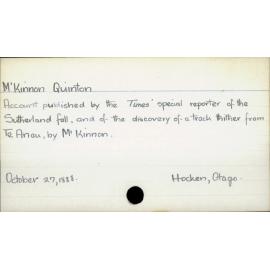 M'Kinnon Quinton
Account published by the 'Times' special reporter of the
Sutherland fall, and of the discovery of a track thither from
Te Anau, by Mr Kinnon.
October 27, 1888.
Hocken, Otago.